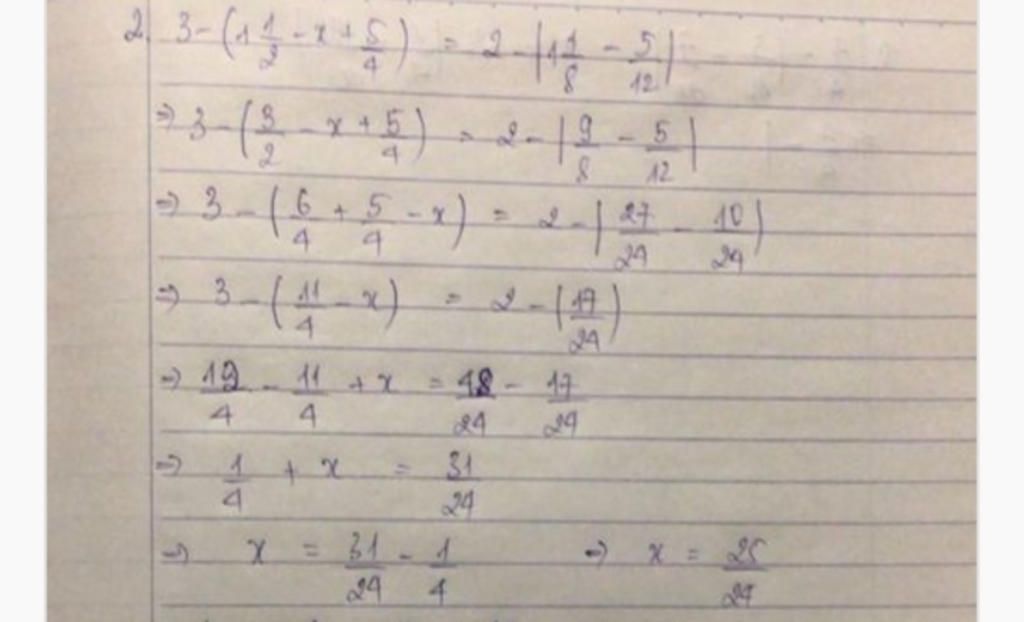 2. 3 - (1 1/2 - x + 5/4) = 2 - |1 1/8 - 5/12|
=> 3 - (3/2 - x + 5/4) = 2 - |9/8 - 5/12|
=> 3 - (6/4 + 5/4 - x) = 2 - |27/24 - 10/24|
=> 3 - (11/4 - x) = 2 - (17/24)
=> 12/4 - 11/4 + x = 48/24 - 17/24
=> 1/4 + x = 31/24
=> x = 31/24 - 1/4 => x = 25/24